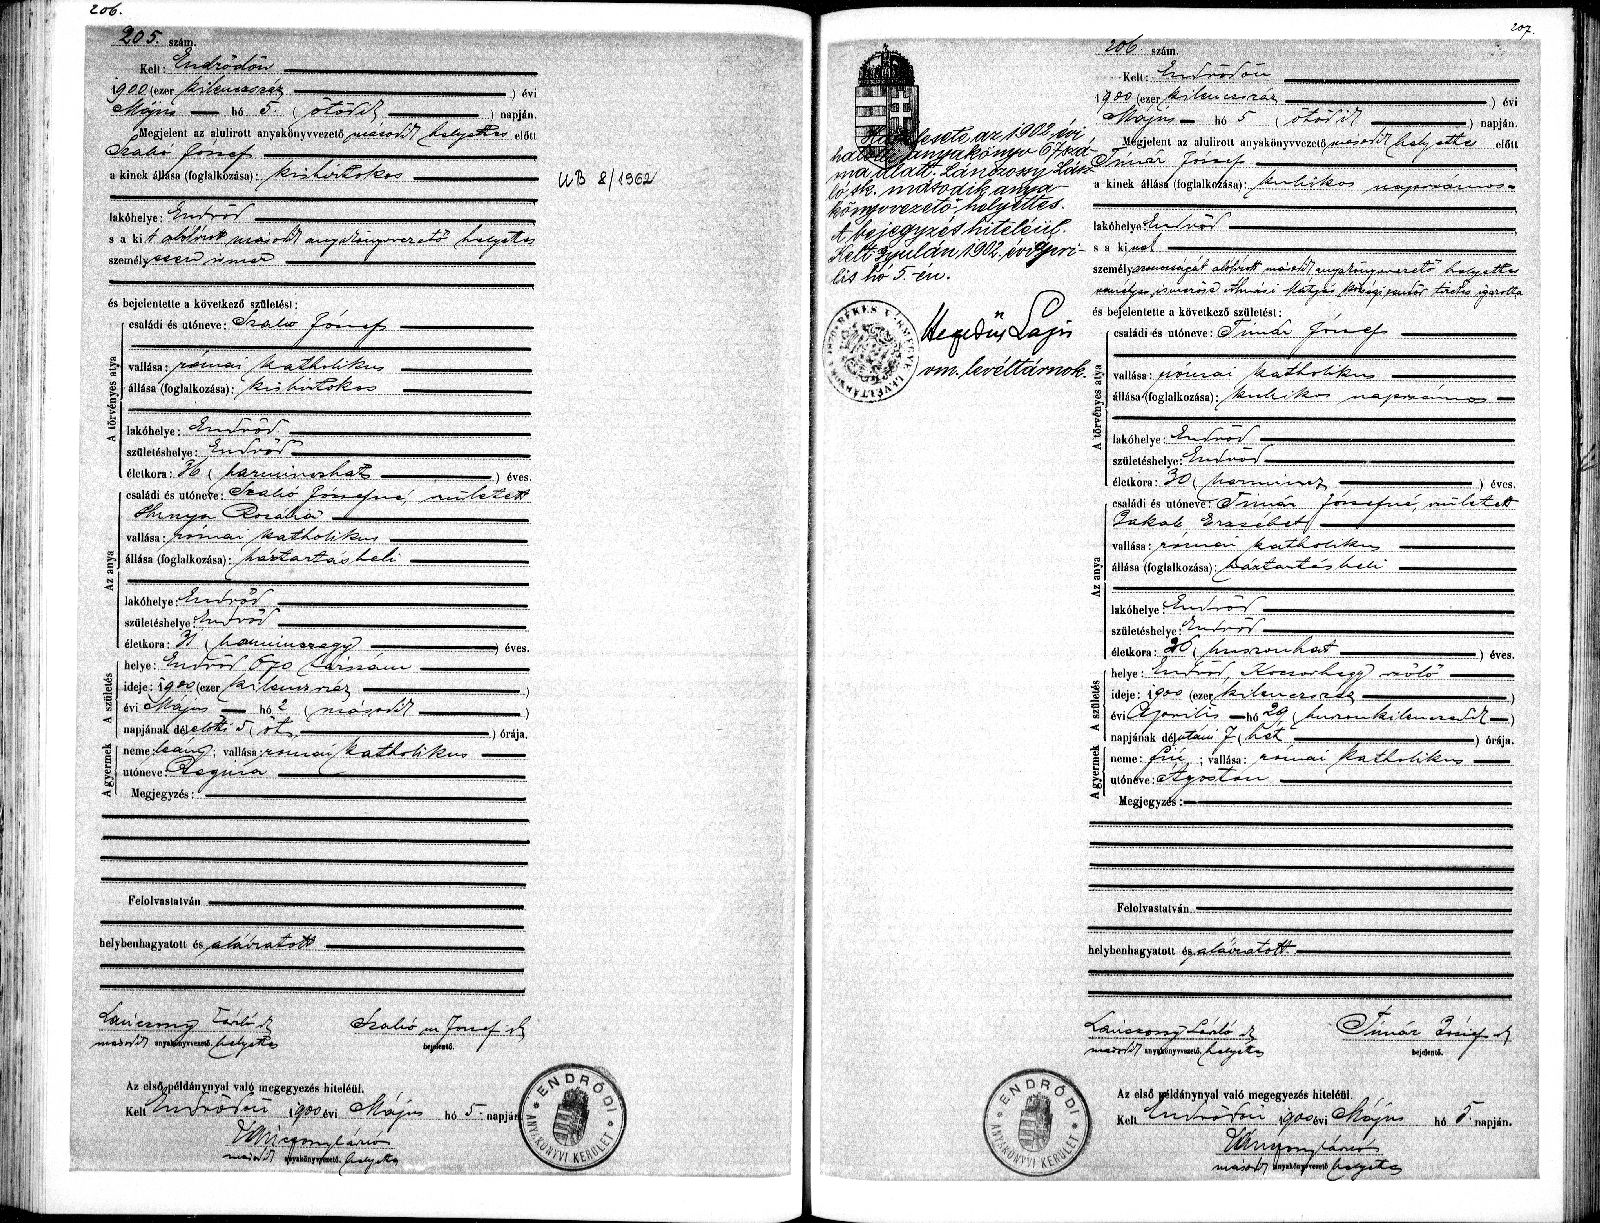 206.
205. szám.
Kelt: Endrődön
1900 (ezer kilenczszáz ) évi
Május hó 5. ( ötödik ) napján.
Megjelent az alulirott anyakönyvvezető második helyettes előtt
Szabó József
a kinek állása (foglalkozása): kisbirtokos
lakóhelye: Endrőd
s a kit alólirott második anyakönyvvezető helyettes
személyesen ismer
és bejelentette a következő születést:
A törvényes atya
családi és utóneve: Szabó József
vallása: római katholikus
állása (foglalkozása): kisbirtokos
lakóhelye: Endrőd
születéshelye: Endrőd
életkora: 36 ( harminczhat ) éves.
Az anya
családi és utóneve: Szabó Józsefné, született
Hunya Rozália
vallása: római katholikus
állása (foglalkozása): háztartásbeli
lakóhelye: Endrőd
születéshelye: Endrőd
életkora: 31 ( harminczegy ) éves.
A születés
helye: Endrőd 670 házszám
ideje: 1900 (ezer kilenczszáz )
évi Május hó 2 ( második )
napjának délelőtti 5 ( öt ) órája.
A gyermek
neme: leány; vallása: római katholikus
utóneve: Regina
Megjegyzés:
Felolvastatván
helybenhagyatott és aláiratott
Lánczony László sk
második anyakönyvvezető. helyettes
Szabó József sk
bejelentő.
Az első példánynyal való megegyezés hiteléül.
Kelt Endrődön 1900 évi Május hó 5. napján
második anyakönyvvezető. helyettes
ENDRŐDI
ANYAKÖNYVI KERÜLET
UB 8/1962
207.
az 1902 évi
halotti anyakönyv 67 szá
ma alatt. Lánczossy Lász
ló sk. második anya
könyvvezető-helyettes.
A bejegyzés hiteléül.
Kelt Gyulán, 1902. évi Ápri-
lis hó 5.-én.
Hegedűs Lajos
vm. levéltárnok.
BÉKÉS VÁRMEGYE LEVÉLTÁRNOKA
206 szám.
Kelt: Endrődön
1900 (ezer kilenczszáz ) évi
Május hó 5 ( ötödik ) napján.
Megjelent az alulirott anyakönyvvezető második helyettes előtt
Timár József
a kinek állása (foglalkozása): kubikos napszámos
lakóhelye: Endrőd
s a kinek
személyazonosságát alólirott második anyakönyvvezető helyettes
személyes ismerőse Almási Mátyás községi rendőr tizedes igazolta
és bejelentette a következő születést:
A törvényes atya
családi és utóneve: Timár József
vallása: római katholikus
állása (foglalkozása): kubikos napszámos
lakóhelye: Endrőd
születéshelye: Endrőd
életkora: 30 ( harmincz ) éves.
Az anya
családi és utóneve: Timár Józsefné, született
Jakab Erzsébet
vallása: római katholikus
állása (foglalkozása): háztartásbeli
lakóhelye: Endrőd
születéshelye: Endrőd
életkora: 26 ( huszonhat ) éves.
A születés
helye: Endrőd, Kocsorhegy szőlő
ideje: 1900 (ezer kilenczszáz )
évi Április hó 29 ( huszonkilenczedik )
napjának délutáni 7 ( hét ) órája.
A gyermek
neme: fiú; vallása: római katholikus
utóneve: Ágoston
Megjegyzés:
Felolvastatván
helybenhagyatott és aláiratott.
Lánczony László sk
második anyakönyvvezető. helyettes
Timár József sk
bejelentő.
Az első példánynyal való megegyezés hiteléül.
Kelt Endrődön 1900 évi Május hó 5 napján.
második anyakönyvvezető. helyettes
ENDRŐDI
ANYAKÖNYVI KERÜLET